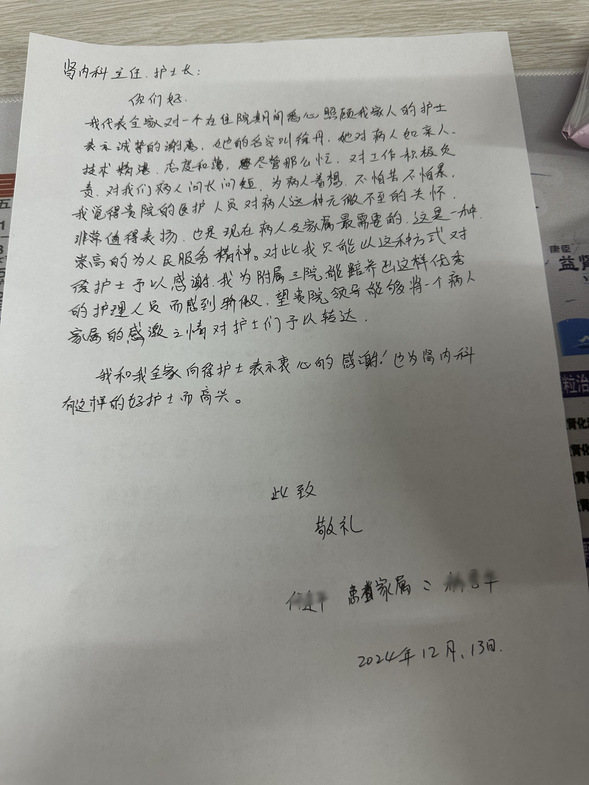 肾内科主任、护士长：
你们好.
我代表全家对一个在住院期间悉心照顾我家人的护士
表示诚挚的谢意，她的名字叫徐丹，她对病人如亲人、
技术精湛、态度和蔼，尽管那么忙，对工作积极负
责，对我们病人问长问短，为病人着想，不怕苦不怕累，
我觉得贵院的医护人员对病人这种无微不至的关怀，
非常值得表扬，也是现在病人及家属最需要的，这是一种
崇高的为人民服务精神。对此我只能以这种方式对
徐护士予以感谢，我为附属三院能培养出这样优秀
的护理人员而感到骄傲，望贵院领导能够将一个病人
家属的感激之情对护士们予以转达.
我和我全家向徐护士表示衷心的感谢！也为肾内科
有这样的好护士而高兴。
此致
敬礼
患者家属：
2024年12月.13日.
五
1
康臣
益肾
粒治
肾化